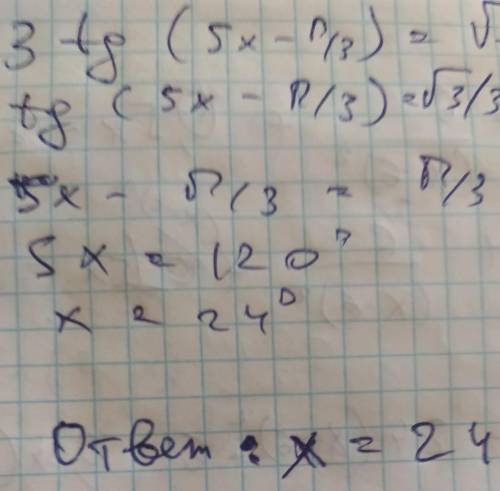 3 tg (5x - П/3) = √
tg (5x - П/3) = √3/3
5x - П/3 = П/3
5x = 120°
x = 24°
Ответ: x = 24